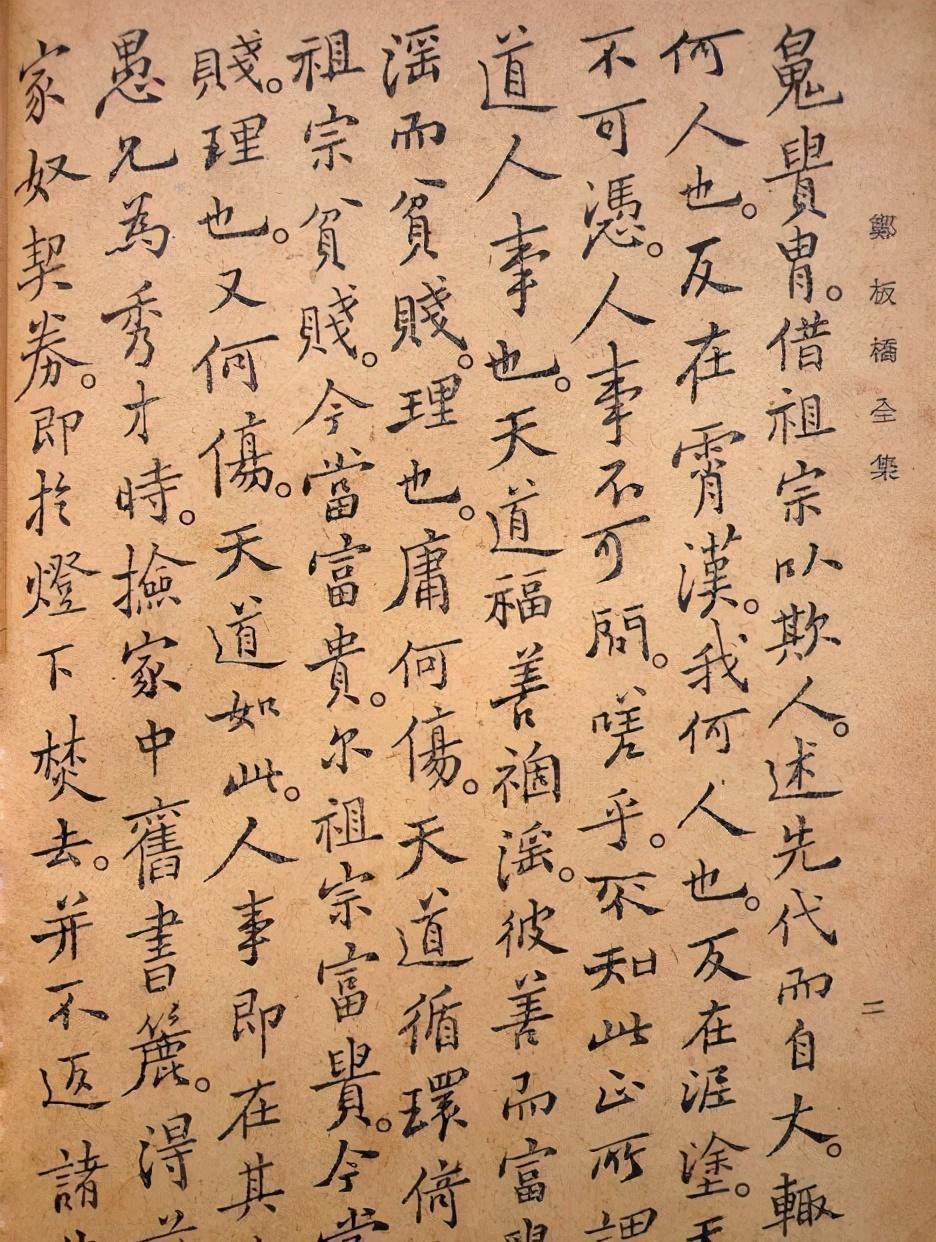 鄭板橋全集
二
裊貴胄。借祖宗以欺人。述先代而自大。輙
何人也。反在霄漢。我何人也。反在泥塗。天
不可憑。人事不可問。嗟乎。不知此正所謂
道人事也。天道福善禍淫。彼善而富貴
淫而貧賤。理也。庸何傷。天道循環倚
祖宗貧賤。今當富貴。尔祖宗富貴。今當
賤。理也。又何傷。天道如此。人事即在其
愚兄為秀才時。撿家中舊書簏。得前
家奴契券。即於燈下焚去。并不返諸